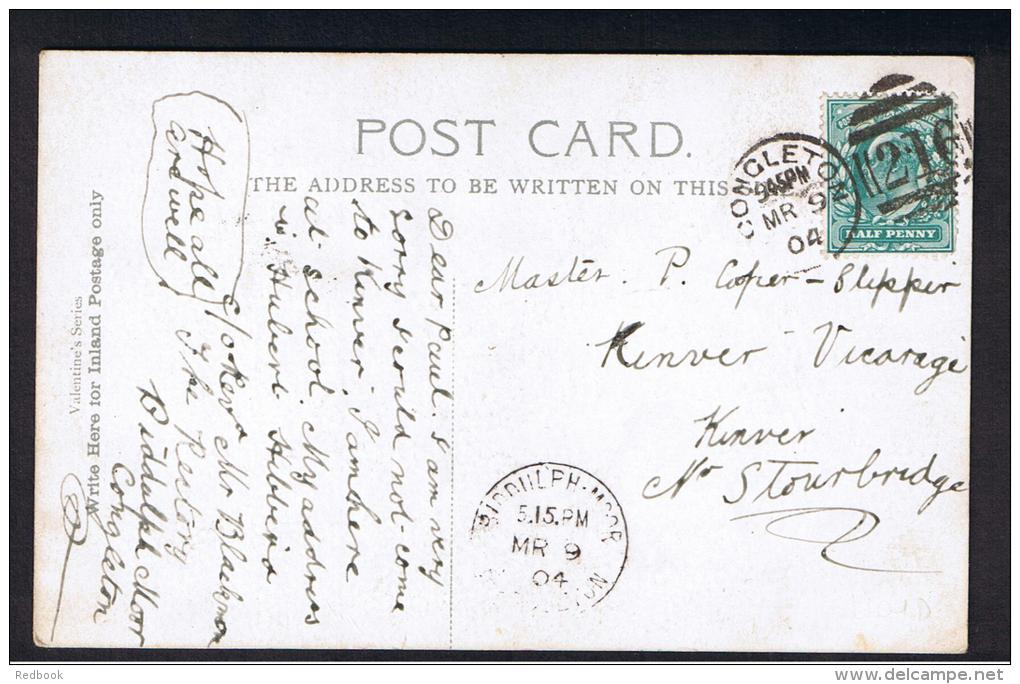 POST CARD.
THE ADDRESS TO BE WRITTEN ON THIS
CONGLETON
9.45PM
MR 9
04
216
HALF PENNY
Master. P. Cooper-Slipper
Kinver Vicarage
Kinver
Nr Stourbridge
BIDDULPH-MOOR
5.15.PM
MR 9
04
Dear Paul. I am very
sorry I could not come
to Kinver I am here
at school. My address
is Hubert Hibberd
C/o Revd Mr Blackmon
The Rectory
Biddulph Moor
Congleton
Hope all
are well
Write Here for Inland Postage only
Valentine's Series
Redbook
www.delcampe.net